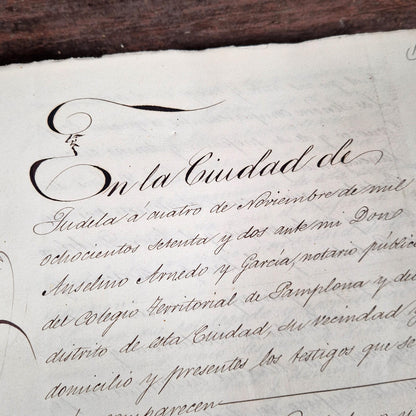 En la Ciudad de
Tudela á cuatro de Noviembre de mil
ochocientos setenta y dos ante mi Don
Anselmo Arnedo y García, notario público
del Colegio Territorial de Pamplona y del
distrito de esta Ciudad, su vecindad y
domicilio y presentes los testigos que se
comparecen